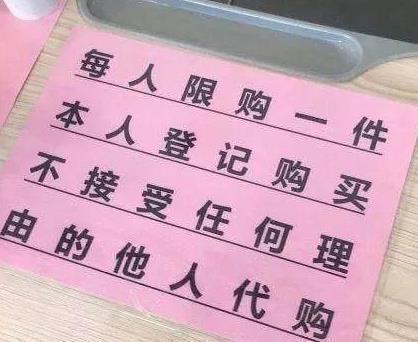 每人限购一件
本人登记购买
不接受任何理
由的他人代购